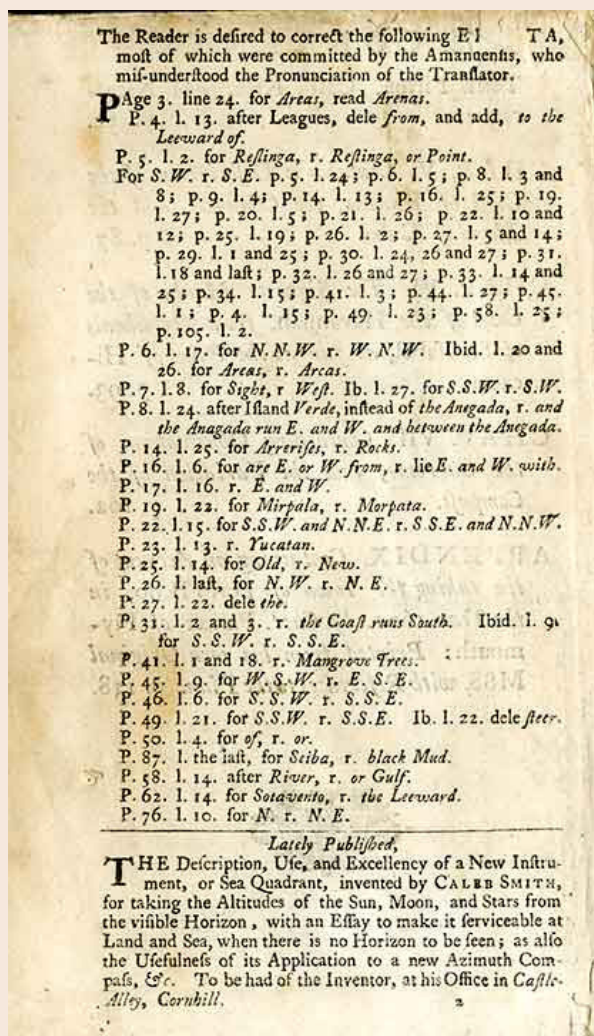 The Reader is deſired to correct the following E TA,
moſt of which were committed by the Amanuenſis, who
miſ-underſtood the Pronunciation of the Tranſlator.
PAge 3. line 24. for Areas, read Arenas.
P. 4. l. 13. after Leagues, dele from, and add, to the
Leeward of.
P. 5. l. 2. for Reſlinga, r. Reſtinga, or Point.
For S. W. r. S. E. p. 5. l. 24; p. 6. l. 5; p. 8. l. 3 and
8; p. 9. l. 4; p. 14. l. 13; p. 16. l. 25; p. 19.
l. 27; p. 20. l. 5; p. 21. l. 26; p. 22. l. 10 and
12; p. 25. l. 19; p. 26. l. 2; p. 27. l. 5 and 14;
p. 29. l. 1 and 25; p. 30. l. 24, 26 and 27; p. 31.
l. 18 and laſt; p. 32. l. 26 and 27; p. 33. l. 14 and
25; p. 34. l. 15; p. 41. l. 3; p. 44. l. 27; p. 45.
l. 1; p. 4. l. 15; p. 49. l. 23; p. 58. l. 25;
p. 105. l. 2.
P. 6. l. 17. for N. N. W. r. W. N. W. Ibid. l. 20 and
26. for Areas, r. Arcas.
P. 7. l. 8. for Sight, r Weſt. Ib. l. 27. for S. S. W. r. S. W.
P. 8. l. 24. after Iſland Verde, inſtead of the Anegada, r. and
the Anagada run E. and W. and between the Anegada.
P. 14. l. 25. for Arreriſes, r. Rocks.
P. 16. l. 6. for are E. or W. from, r. lie E. and W. with.
P. 17. l. 16. r. E. and W.
P. 19. l. 22. for Mirpala, r. Morpata.
P. 22. l. 15. for S. S. W. and N. N. E. r. S S. E. and N. N. W.
P. 23. l. 13. r. Yucatan.
P. 25. l. 14. for Old, r. New.
P. 26. l. laſt, for N. W. r. N. E.
P. 27. l. 22. dele the.
P. 31. l. 2 and 3. r. the Coaſt runs South. Ibid. l. 9.
for S. S. W. r. S. S. E.
P. 41. l. 1 and 18. r. Mangrove Trees.
P. 45. l. 9. for W. S. W. r. E. S. E.
P. 46. l. 6. for S. S. W. r. S. S. E.
P. 49. l. 21. for S. S. W. r. S. S. E. Ib. l. 22. dele ſteer.
P. 50. l. 4. for of, r. or.
P. 87. l. the laſt, for Seiba, r. black Mud.
P. 58. l. 14. after River, r. or Gulf.
P. 62. l. 14. for Sotavento, r. the Leeward.
P. 76. l. 10. for N. r. N. E.
Lately Publiſhed,
THE Deſcription, Uſe, and Excellency of a New Inſtru-
ment, or Sea Quadrant, invented by CALEB SMITH,
for taking the Altitudes of the Sun, Moon, and Stars from
the viſible Horizon, with an Eſſay to make it ſerviceable at
Land and Sea, when there is no Horizon to be ſeen; as alſo
the Uſefulneſs of its Application to a new Azimuth Com-
paſs, &c. To be had of the Inventor, at his Office in Caſtle-
Alley, Cornhill. 2